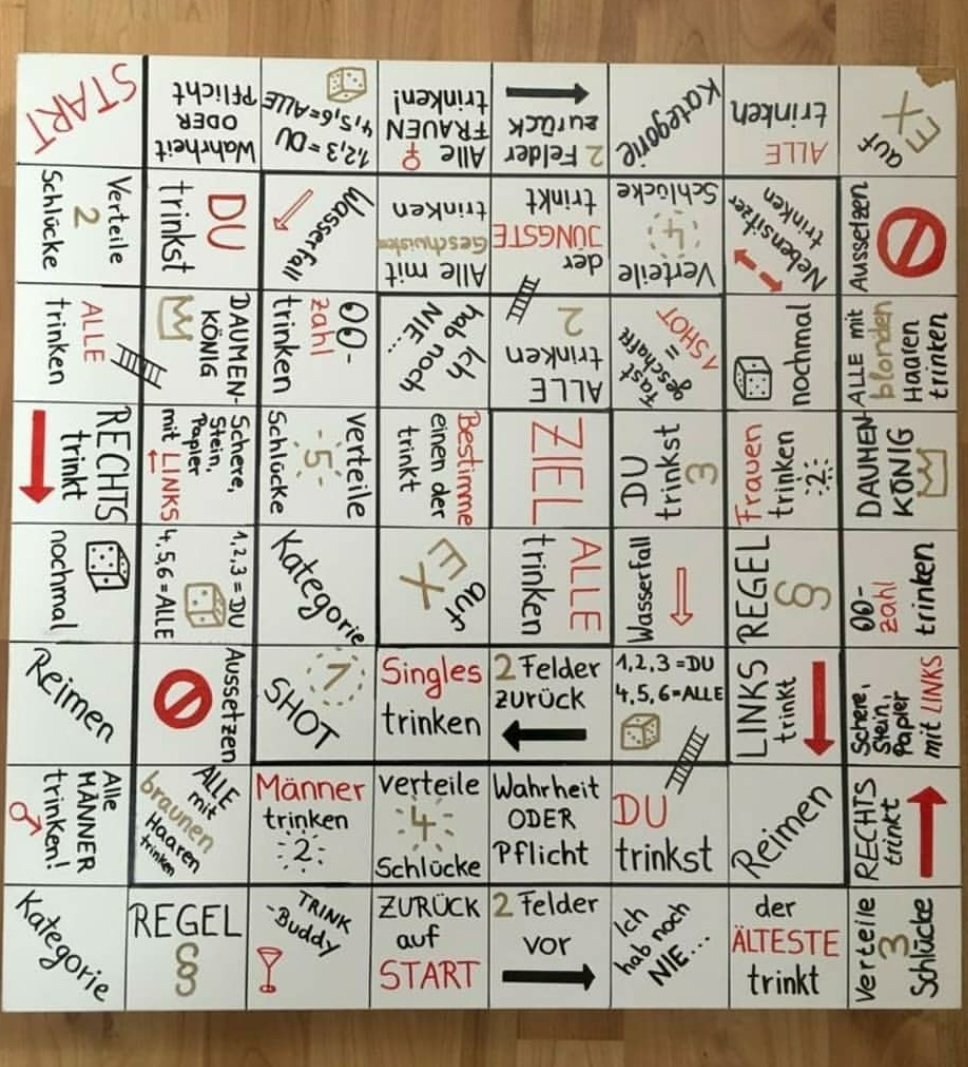 START
Wahrheit
ODER
Pflicht
1,2,3 = DU
4,5,6=ALLE
Alle ♀
FRAUEN
trinken!
2 Felder
zurück
Kategorie
ALLE
trinken
auf
EX
Verteile
2
Schlücke
DU
trinkst
Wasserfall
Alle mit
Geschwister
trinken
der
JÜNGSTE
trinkt
Verteile
4
Schlücke
Nebensitzer
trinken
Aussetzen
ALLE
trinken
DAUMEN-
KÖNIG
00-
zahl
trinken
Ich
hab noch
NIE...
ALLE
trinken
2
fast
geschafft
=
1 SHOT
nochmal
ALLE mit
blonden
Haaren
trinken
RECHTS
trinkt
Schere,
Stein,
Papier
mit LINKS
verteile
5
Schlücke
Bestimme
einen der
trinkt
ZIEL
DU
trinkst
3
Frauen
trinken
2
DAUMEN
KÖNIG
nochmal
1,2,3 = DU
4,5,6 = ALLE
Kategorie
auf
EX
ALLE
trinken
Wasserfall
REGEL
§
00-
zahl
trinken
Reimen
Aussetzen
1
SHOT
Singles
trinken
2 Felder
zurück
1,2,3 =DU
4,5,6=ALLE
LINKS
trinkt
Schere,
Stein,
Papier
mit LINKS
Alle
MÄNNER
trinken!
♂
ALLE
mit
braunen
Haaren
trinken
Männer
trinken
2
verteile
4
Schlücke
Wahrheit
ODER
Pflicht
DU
trinkst
Reimen
RECHTS
trinkt
Kategorie
REGEL
§
TRINK
-Buddy
ZURÜCK
auf
START
2 Felder
vor
Ich
hab noch
NIE...
der
ÄLTESTE
trinkt
Verteile
3
Schlücke